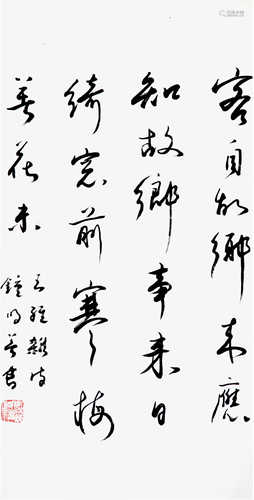 客自故鄉来應
知故鄉事来日
綺窓前寒梅
著花未
王維雜詩
鐘明善書